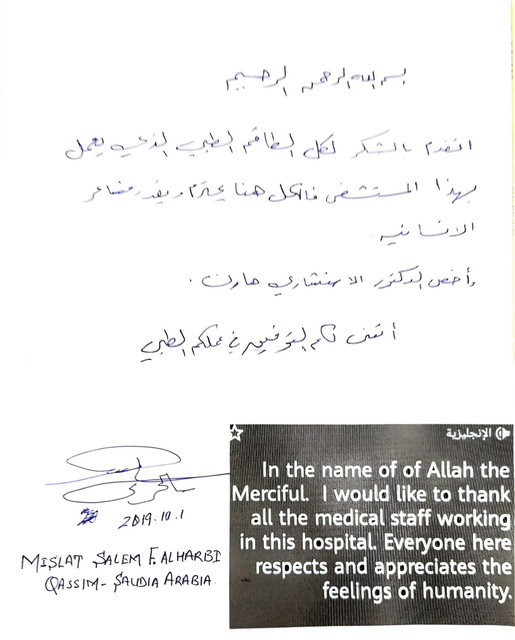 بسم الله الرحمن الرحيم
اتقدم بالشكر لكل الطاقم الطبي الذي يعمل
بهذا المستشفى فالكل هنا يحترم ويقدر مشاعر
الانسانيه.
وأخص الدكتور الاستشاري هارن.
أتمنى لكم التوفيق في عملكم الطبي
2019.10.1
MISLAT SALEM F. ALHARBI
QASSIM - SAUDIA ARABIA.
الإنجليزية
In the name of of Allah the
Merciful. I would like to thank
all the medical staff working
in this hospital. Everyone here
respects and appreciates the
feelings of humanity.